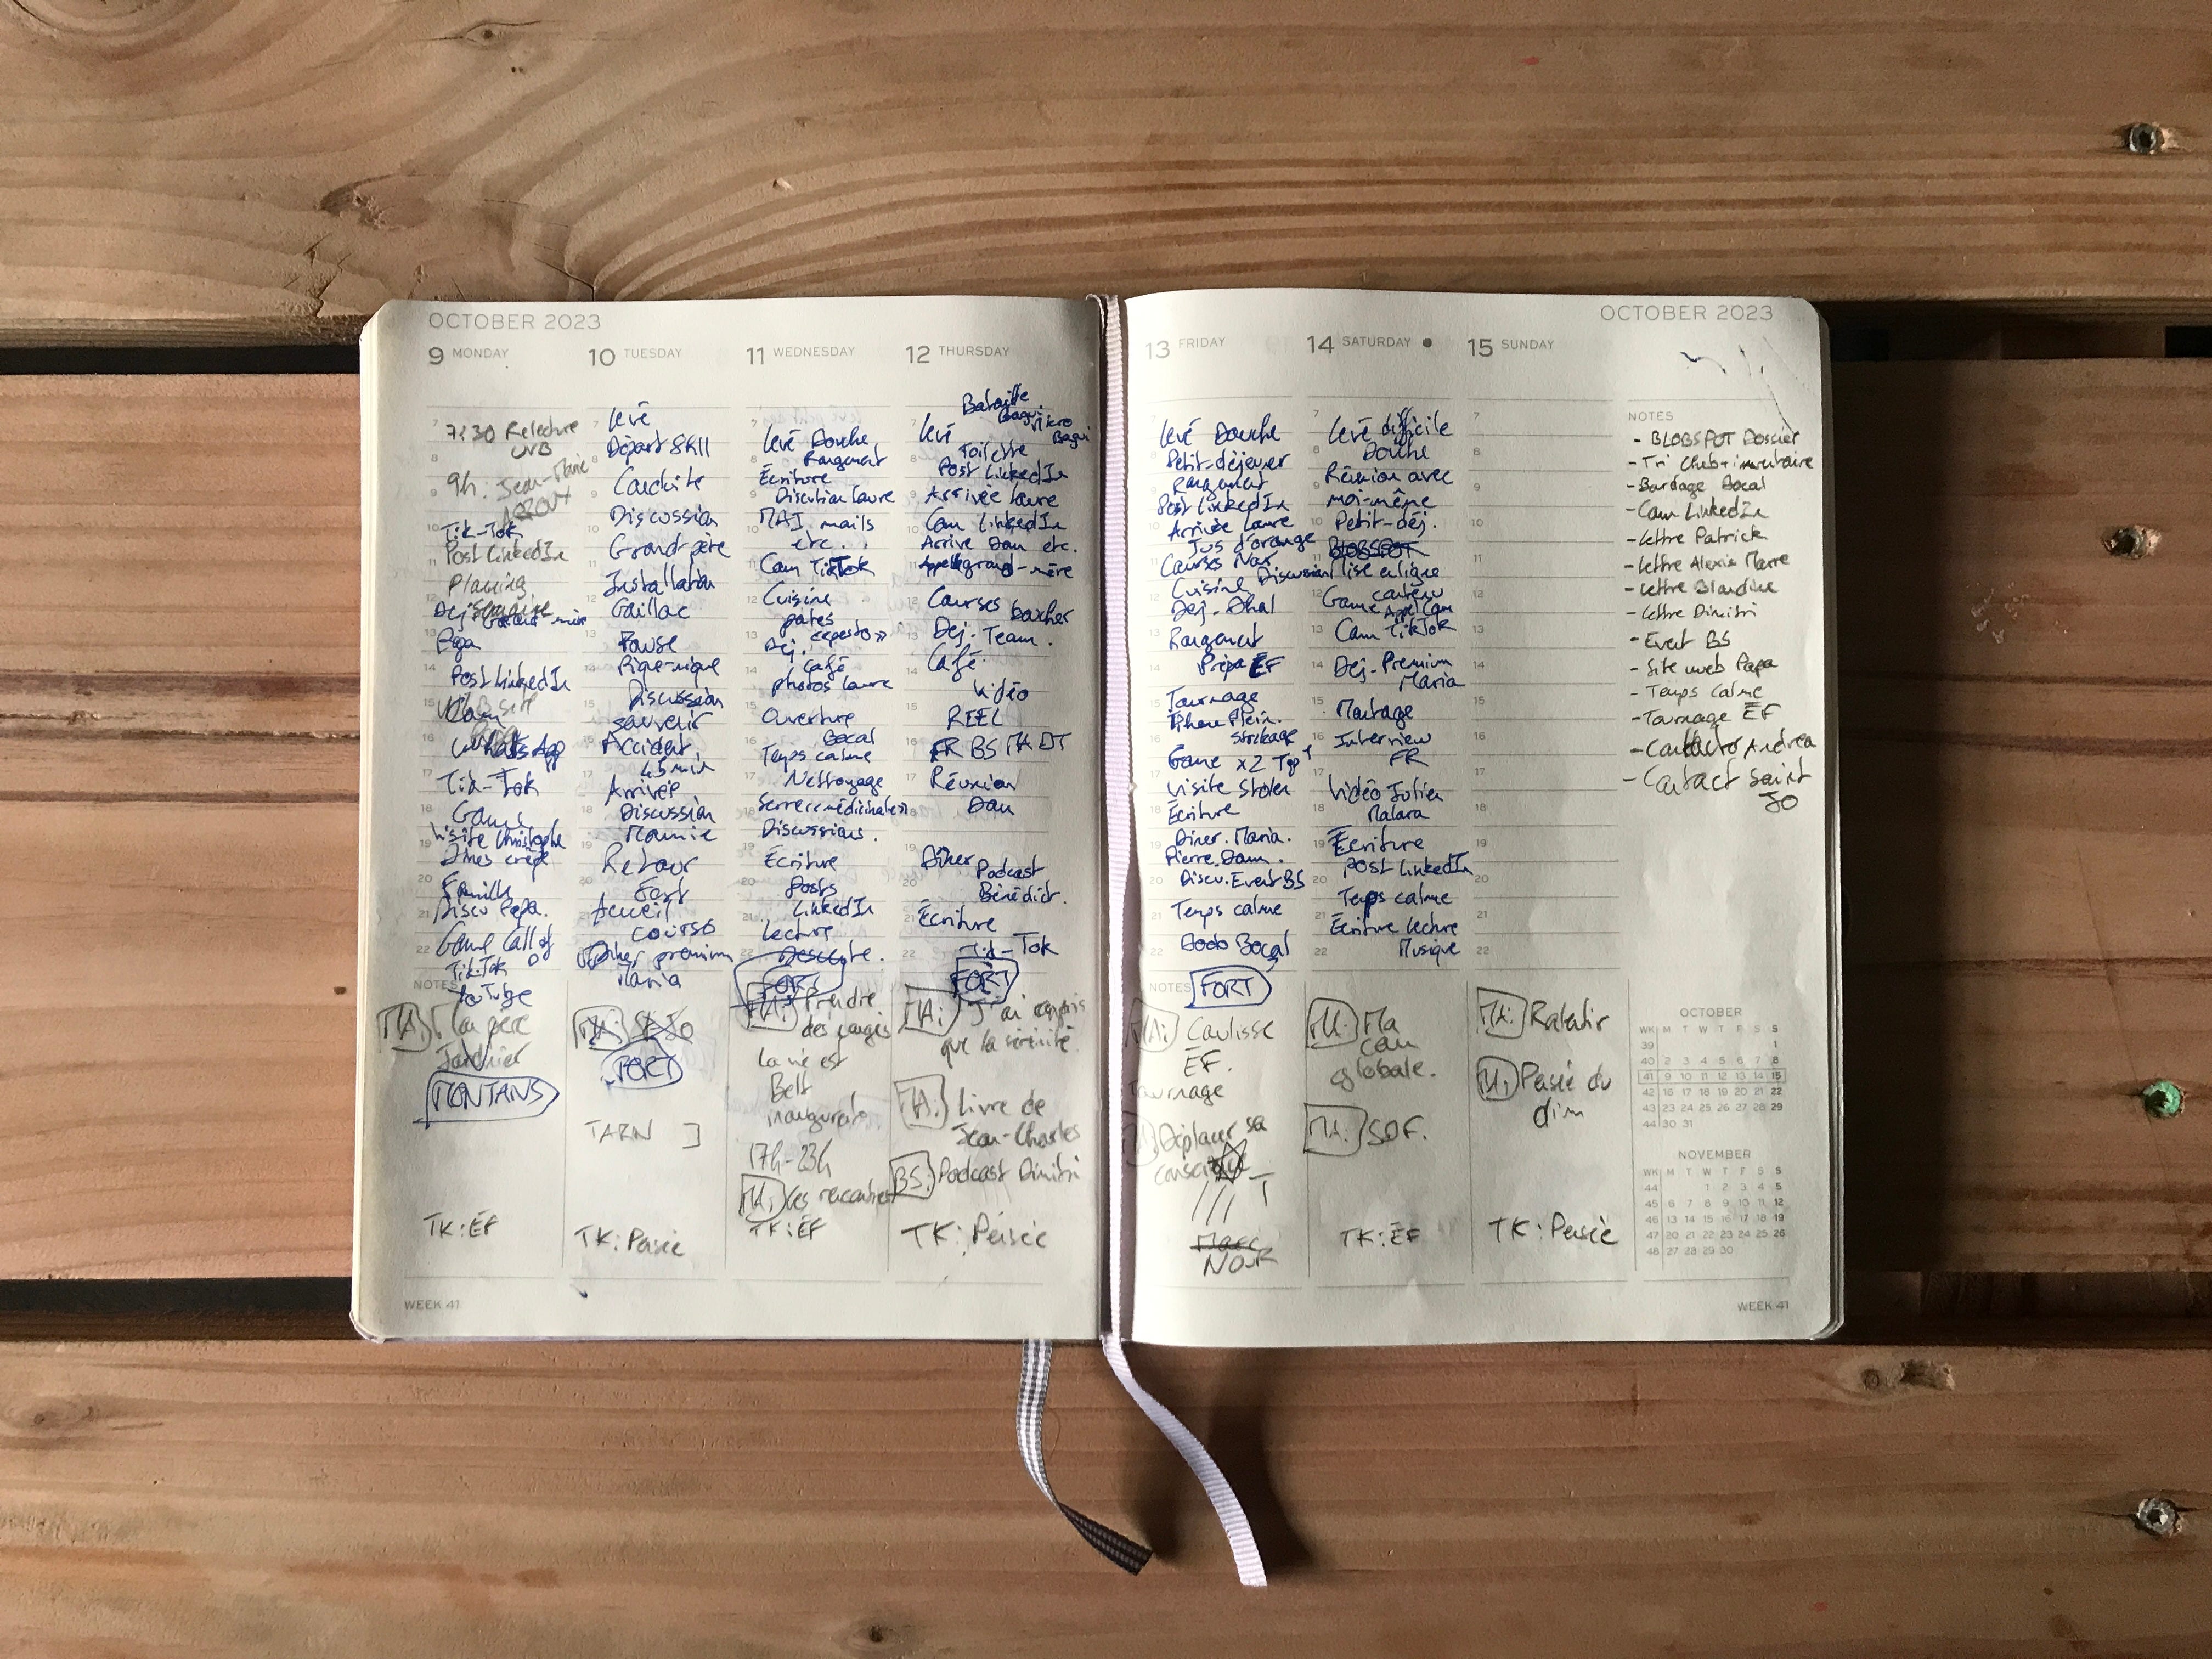 OCTOBER 2023
9 MONDAY
7:30 Relecture
9h: Jean-Marie
Tik-Tok
Post LinkedIn
Planing
Post LinkedIn
WhatsApp
Tik-Tok
Game
Visite Christophe
Famille
Discu Papa.
Game Call of
Tik-Tok
YouTube
NOTES
MA:
Mon père
Jardinier
MONTANS
TK: ÉF
10 TUESDAY
levé
Départ 8h11
Conduite
Discussion
Grand père
Installation
Gaillac
Pause
Pique-nique
Discussion
souvenir
Accident
45 min
Arrivée
Discussion
Mamie
Retour
Fort
Accueil
courso
Dîner premium
Maria
MA: St Jo
FORT
TARN ]
TK: Pensée
11 WEDNESDAY
levé Douche
Rangement
Écriture
Discution Laure
MAJ mails
etc..
Com TikTok
Cuisine
pates
Dej. «pesto»
Café
photos Laure
Ouverture
Bocal
Temps calme
Nettoyage
Serre «médicinale»
Discussions.
Écriture
Posts
LinkedIn
Lecture
FORT
MA: Prendre
des congés
La vie est
Belt
inaugurat.
17h-23h
MA: Les rencontres
TK: ÉF
12 THURSDAY
Bataille
levé
Toilette
Post LinkedIn
Arrivée Laure
Com LinkedIn
Arrive Dom etc.
Appel grand-mère
Courses
Dej. Team.
Café.
Vidéo
REEL
FR BS MA DT
Réunion
Dom
Dîner
Podcast
Bénédict.
Écriture
Tik-Tok
FORT
MA: J'ai compris
que la sérénité.
MA: Livre de
Jean-Charles
BS: Podcast Dimitri
TK: Pensée
WEEK 41
OCTOBER 2023
13 FRIDAY
levé Douche
Petit-déjeuner
Rangement
Post LinkedIn
Arrivée Laure
Jus d'orange
Courses Nox
Cuisine Discussion
Dej. Dhal
Rangement
Prépa ÉF
Tournage
Iphone plein.
Stockage
Game x2 Top 1
Visite Stolen
Écriture
Diner. Maria.
Pierre. Dom.
Discu. Event BS
Temps calme
Dodo Bocal
NOTES
FORT
MA: Coulisse
ÉF.
Tournage
Déplacer sa
NOIR
14 SATURDAY
levé difficile
Douche
Réunion avec
moi-même
Petit-déj.
BLOBSPOT
Mise en ligne
contenu
Game Appel Com
Com TikTok
Dej. Premium
Maria
Montage
Interview
FR
Vidéo Julien
Malara
Écriture
Post LinkedIn
Temps calme
Écriture lecture
Musique
MA: Ma
com
globale.
MA: SOF.
TK: ÉF
15 SUNDAY
MA: Ralentir
MA: Pensée du
dim
TK: Pensée
NOTES
- BLOBSPOT Dossier
- Tri Cheb + inventaire
- Bardage Bocal
- Com LinkedIn
- Lettre Patrick
- Lettre Alexis Marre
- Lettre Blandine
- Lettre Dimitri
- Event BS
- Site web Papa
- Temps calme
- Tournage ÉF
- Contact Andrea
- Contact Saint
Jo
OCTOBER
WK M T W T F S S
39 1
40 2 3 4 5 6 7 8
41 9 10 11 12 13 14 15
42 16 17 18 19 20 21 22
43 23 24 25 26 27 28 29
44 30 31
NOVEMBER
WK M T W T F S S
44 1 2 3 4 5
45 6 7 8 9 10 11 12
46 13 14 15 16 17 18 19
47 20 21 22 23 24 25 26
48 27 28 29 30
WEEK 41